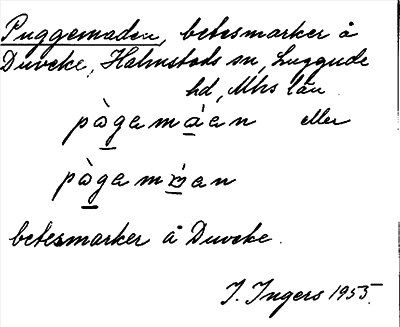 Puggemaden, betesmarker å
Duveke, Halmstads sn, Luggude
hd, Mhs län.
pàgamáen eller
pàgam
betesmarker å Duveke.
I. Ingers 1955.